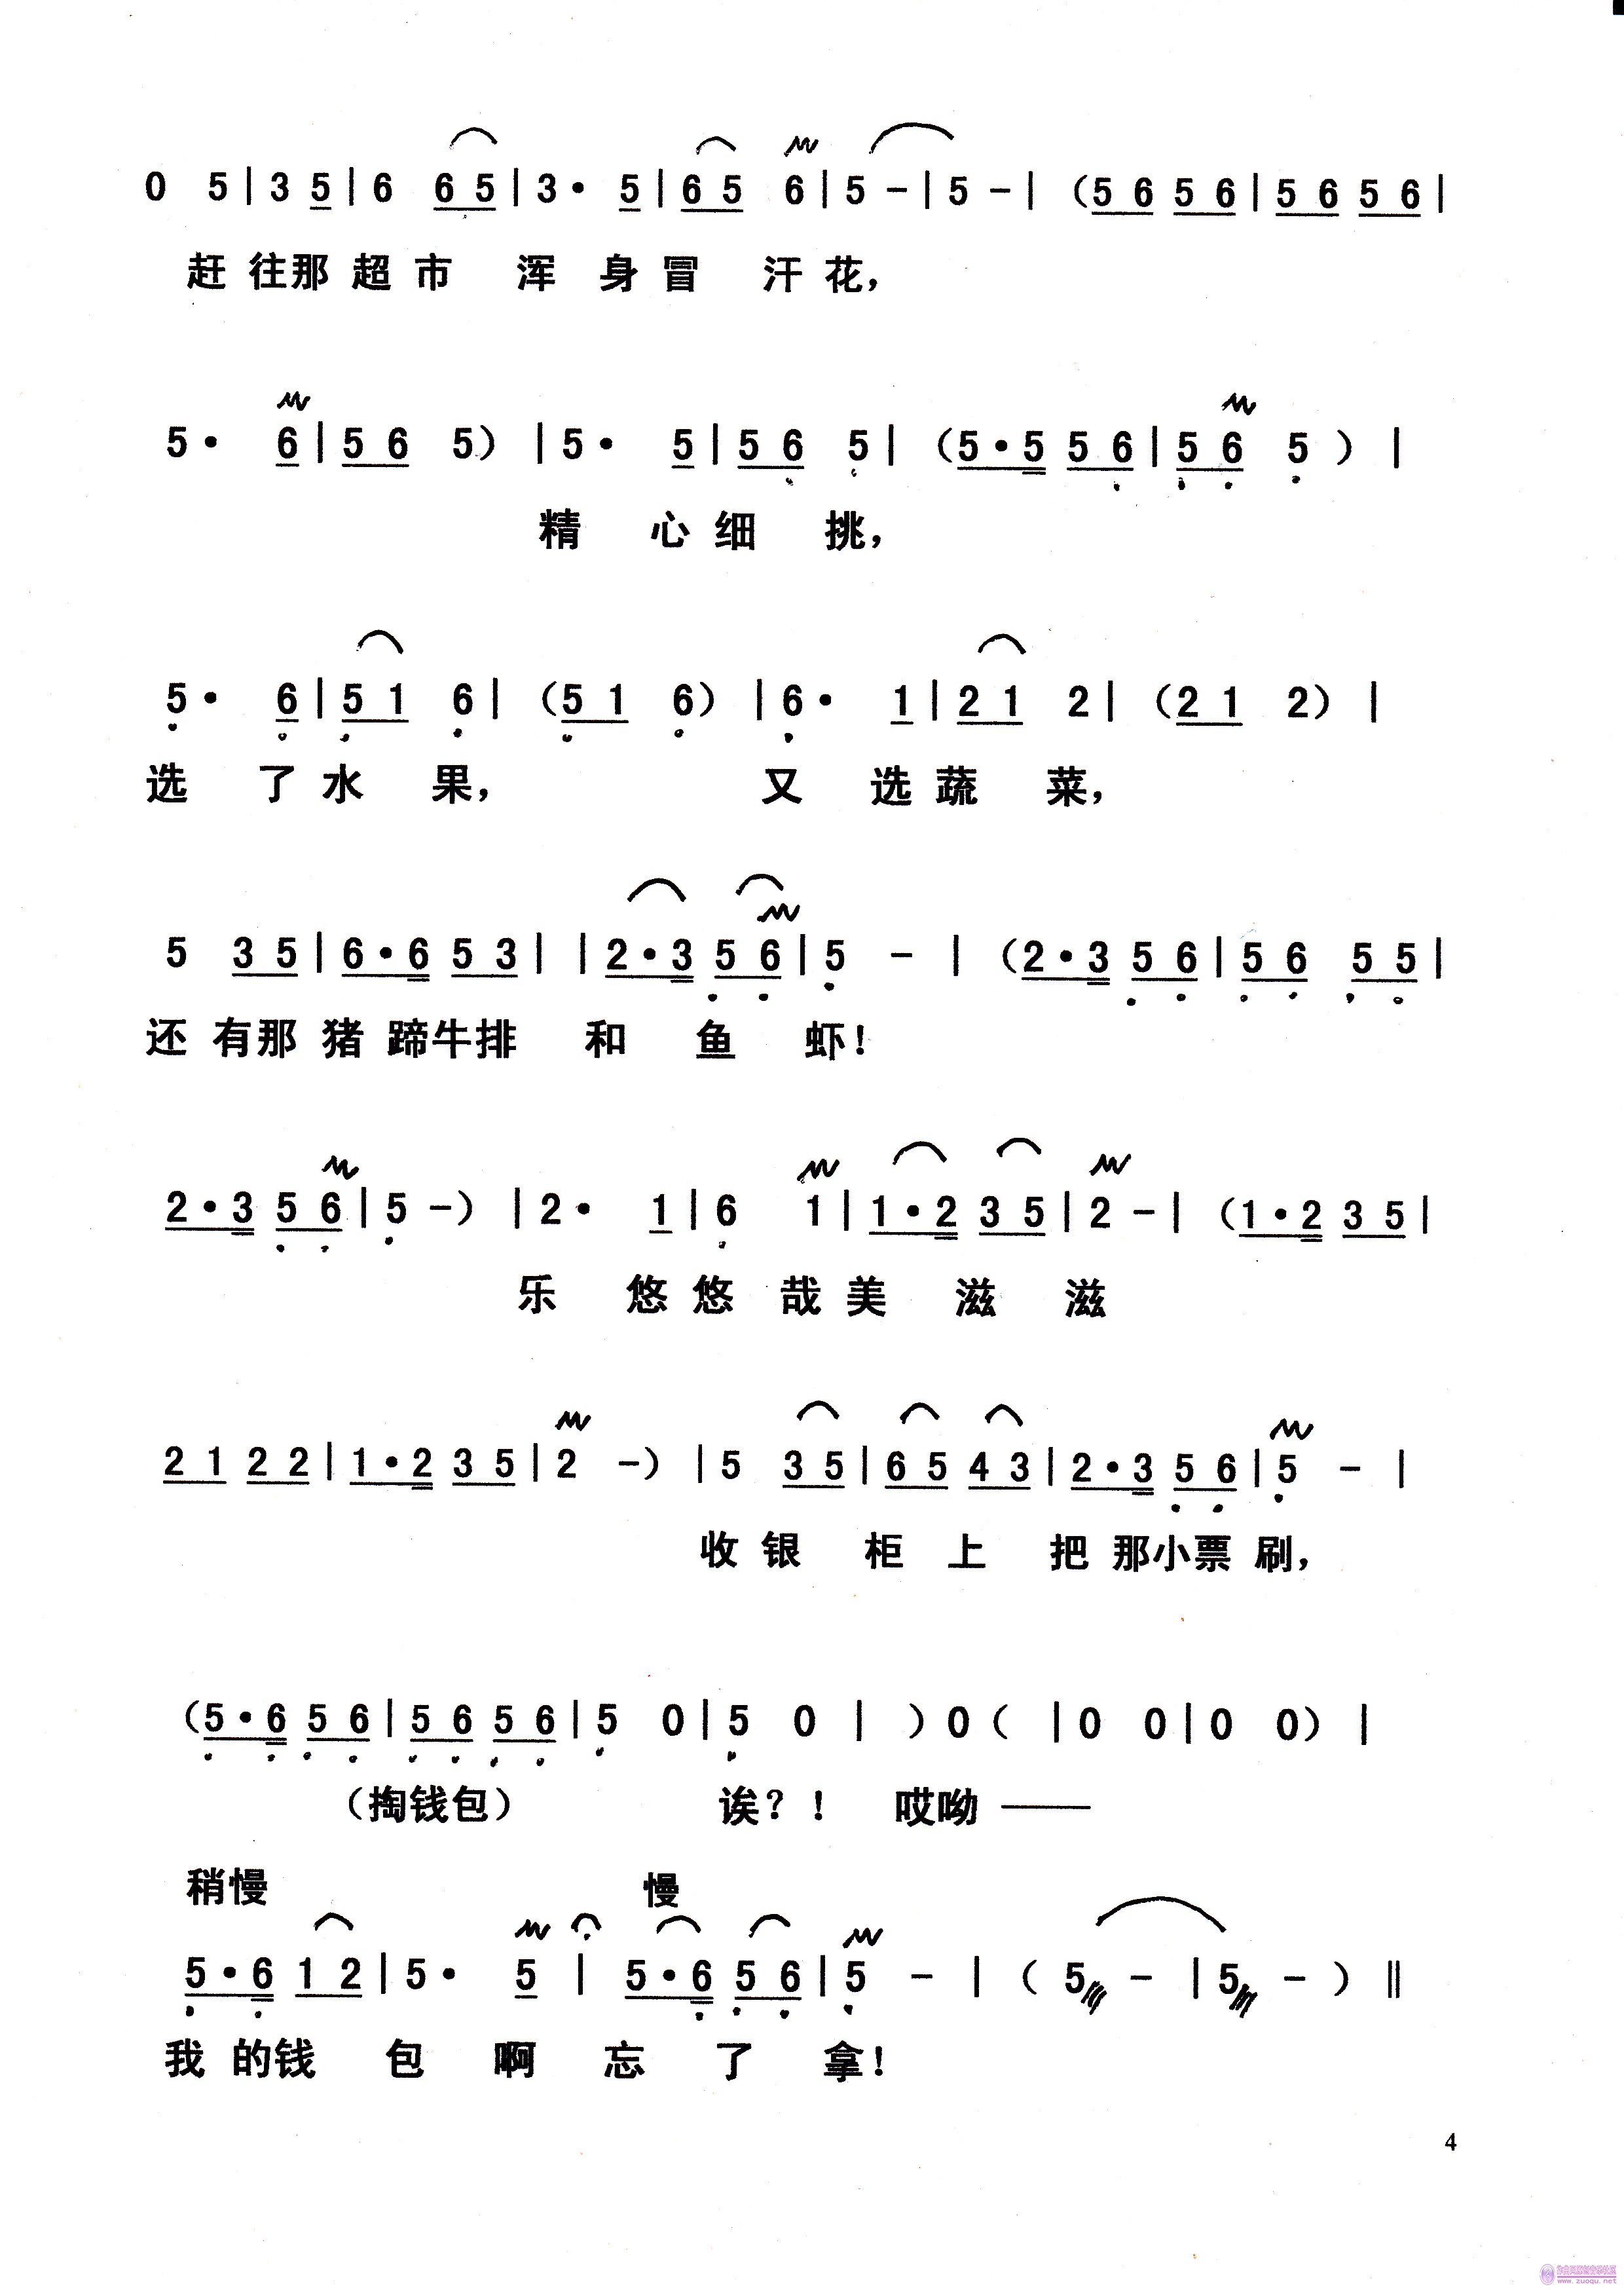 0 5|3 5|6 6 5|3· 5|6 5 6|5 -|5 -|(5 6 5 6|5 6 5 6|
赶 往那 超 市 浑 身 冒 汗 花,
5· 6|5 6 5)|5· 5|5 6 5|(5·5 5 6|5 6 5)|
精 心 细 挑,
5· 6|5 1 6|(5 1 6)|6· 1|2 1 2|(2 1 2)|
选 了 水 果, 又 选 蔬 菜,
5 3 5|6·6 5 3| |2·3 5 6|5 -|(2·3 5 6|5 6 5 5|
还 有那 猪 蹄牛排 和 鱼 虾!
2·3 5 6|5 -)|2· 1|6 1|1·2 3 5|2 -|(1·2 3 5|
乐 悠 悠 哉 美 滋 滋
2 1 2 2|1·2 3 5|2 -)|5 3 5|6 5 4 3|2·3 5 6|5 -|
收 银 柜 上 把 那小票 刷,
(5·6 5 6|5 6 5 6|5 0|5 0|)0(|0 0|0 0)|
(掏钱包) 诶?! 哎呦 ——
稍慢 慢
5·6 1 2|5· 5|5·6 5 6|5 -|(5 -|5 -)‖
我 的钱 包 啊 忘 了 拿!
4
www.zuoqu.net